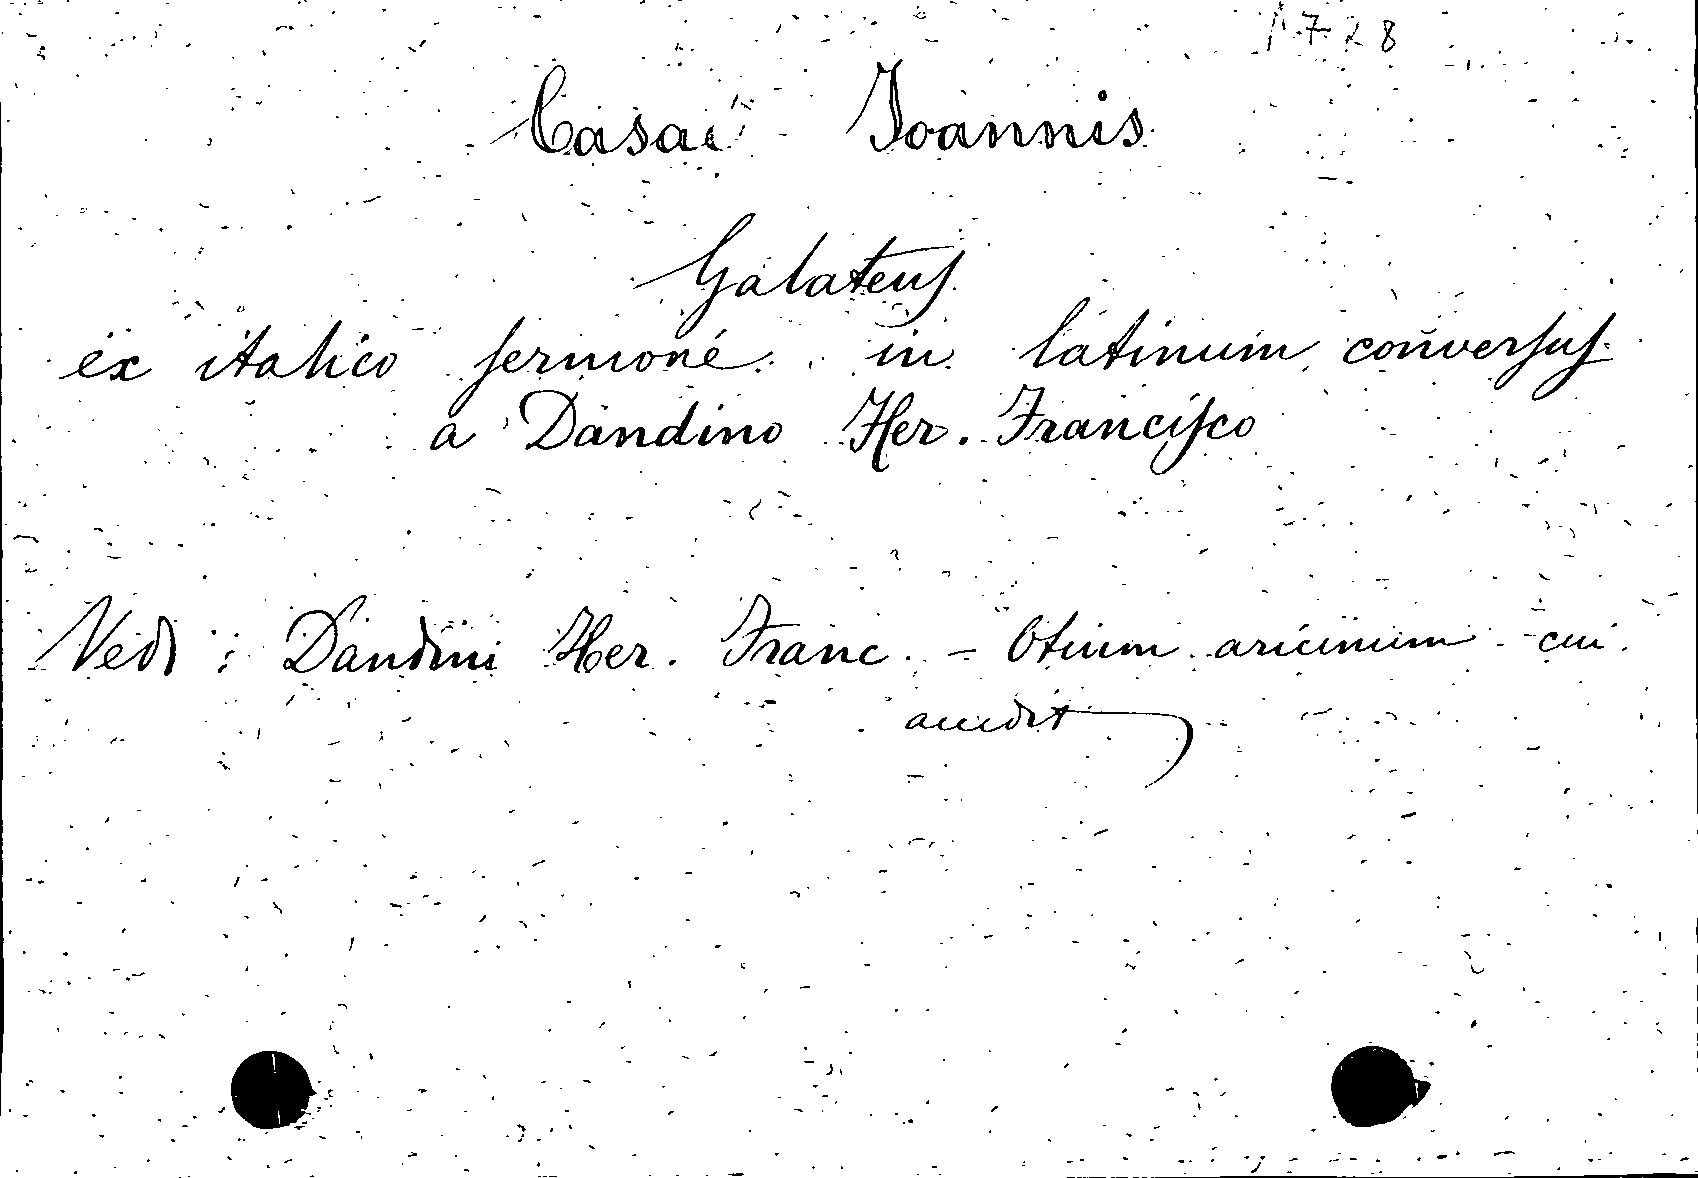 1728
Casae Joannis
Galateus
ex italico sermone in latinum conversus
a Dandino Her. Francisco
Vedi: Dandini Her. Franc. - Otium aricinum cui
accedit